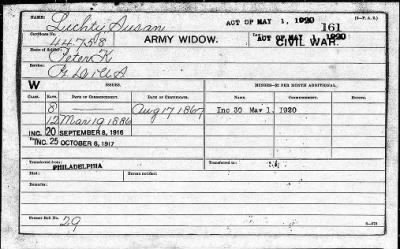 Luchty Susan
ACT OF MAY 1, 1920
161
Certificate No.
44758
ARMY WIDOW.
ACT OF MAY 1, 1920
CIVIL WAR.
Name of Soldier:
Peter K
Service:
W
ISSUES.
CLASS.
RATE.
DATE OF COMMENCEMENT.
DATE OF CERTIFICATE.
RATE.
COMMENCEMENT.
8
Aug 17 1867
Inc 30 May 1, 1920
12 Mar 19 1886
INC. 20 SEPTEMBER 8, 1916
INC. 25 OCTOBER 6, 1917
Transferred from
PHILADELPHIA
Transferred to
Died:
Bureau notified:
Remarks:
Former Roll No.
29